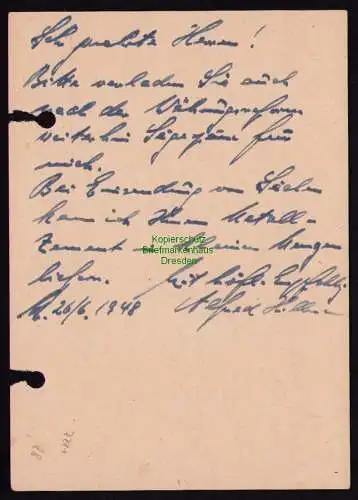 Sehr geehrte Herren!
Bitte verladen Sie auch
nach der Währungsreform
weiterhin Sägespäne für
mich.
Bei Einsendung von Säcken
kann ich Ihnen Metall-
Zement in kleinen Mengen
liefern. Mit höfl. Empfehlg.
26/6. 1948 Alfred
Kopierschutz
Briefmarkenhaus
Dresden